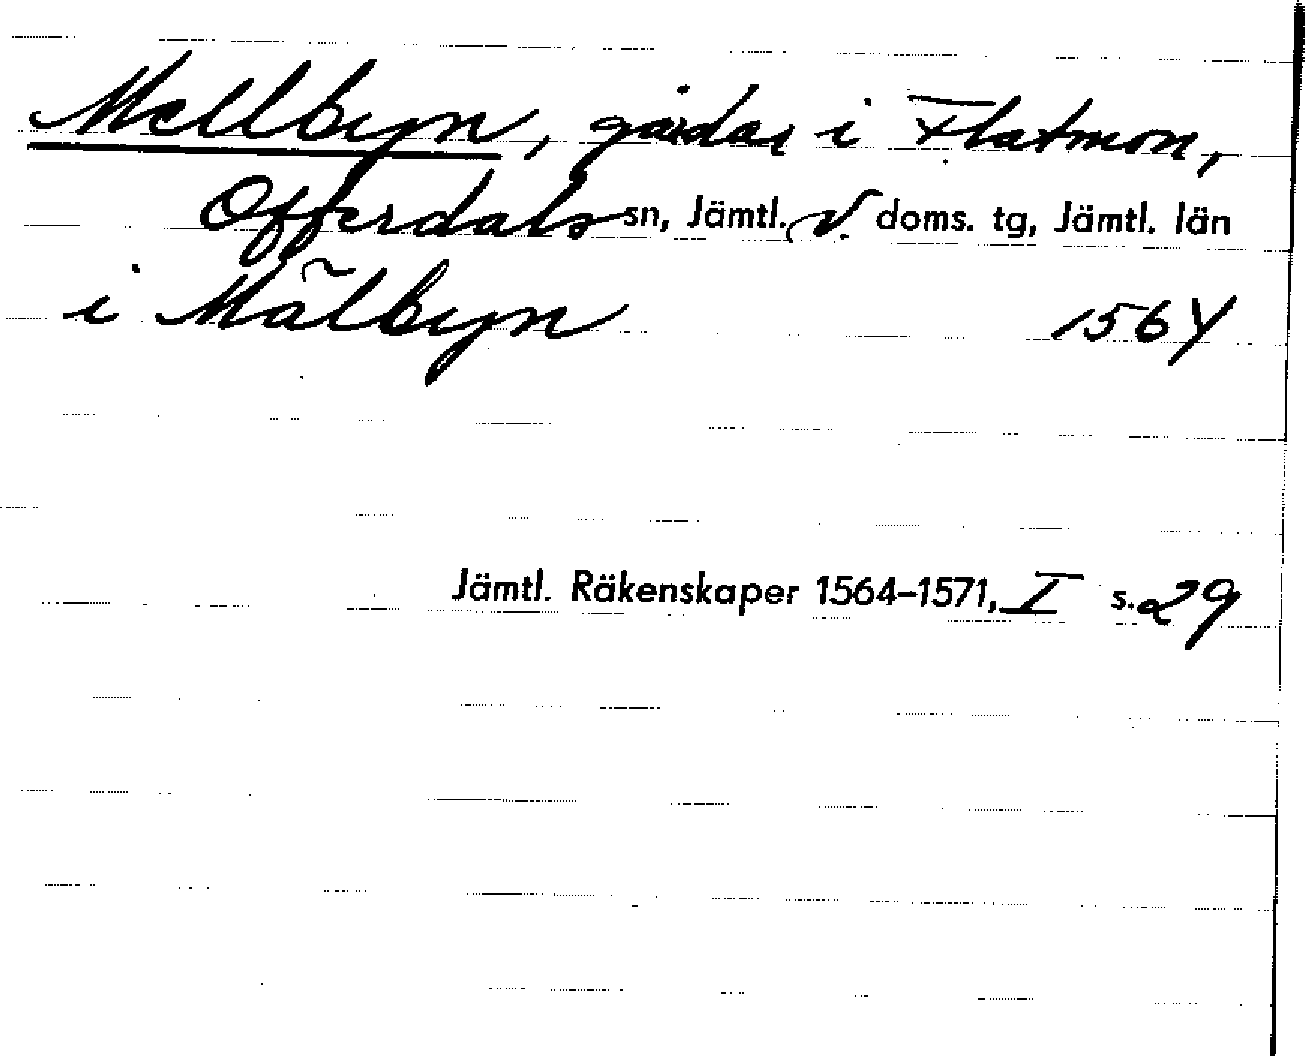 Mellbyn, gårdar i Flatmon,
Offerdals sn, Jämtl. V. doms. tg, Jämtl. län
i Mãlbyn 1564
Jämtl. Räkenskaper 1564–1571, I s. 29